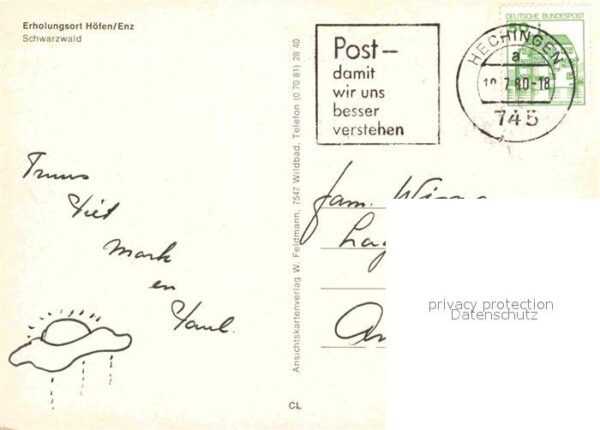 Erholungsort Höfen/Enz
Schwarzwald
Post—
damit
wir uns
besser
verstehen
DEUTSCHE BUNDESPOST
HECHINGEN
a
7.80-18
745
Truus
Mark
en
Fam.
Ansichtskartenverlag W. Feldmann, 7547 Wildbad, Telefon (0 70 81) 28 40
CL
privacy protection
Datenschutz